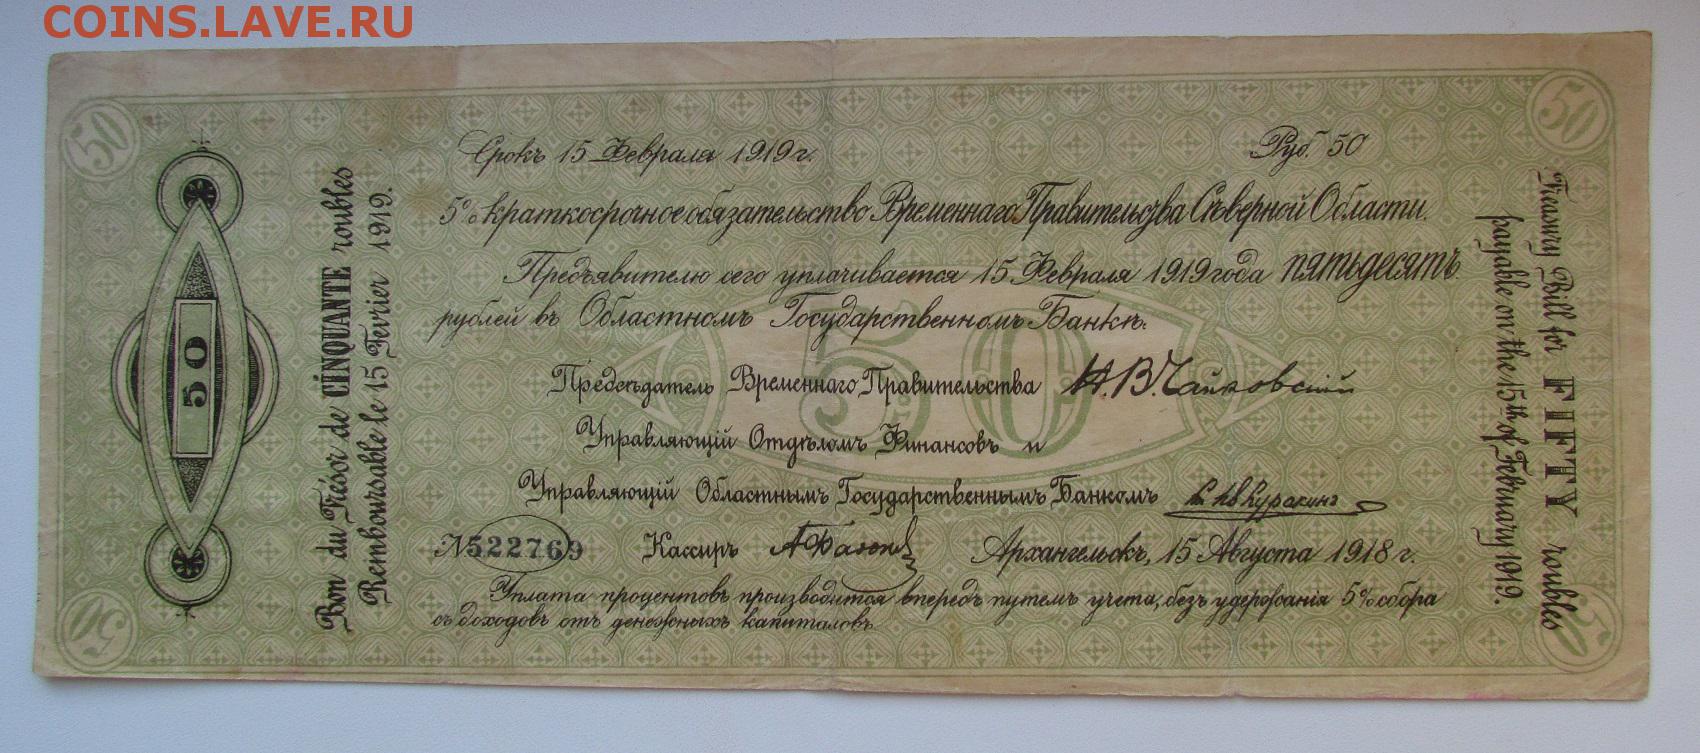 COINS.LAVE.RU
50
50
Срокъ 15 Февраля 1919 г.
Руб. 50
5% краткосрочное обязательство Временнаго Правительства Сѣверной Области.
Предъявителю сего уплачивается 15 Февраля 1919 года пятьдесятъ
рублей въ Областномъ Государственномъ Банкѣ.
50
Предсѣдатель Временнаго Правительства Н. В. Чайковскій
Управляющій Отдѣломъ Финансовъ и
Управляющій Областнымъ Государственнымъ Банкомъ Куракинъ
№ 522769
Кассиръ
Архангельскъ, 15 Августа 1918 г.
Уплата процентовъ производится впередъ путемъ учета, безъ удержанія 5% сбора
съ доходовъ отъ денежныхъ капиталовъ.
50
Bon du Trésor de CINQUANTE roubles
Remboursable le 15 Fevrier 1919.
Treasury Bill for FIFTY roubles
payable on the 15th of February 1919.
50
50